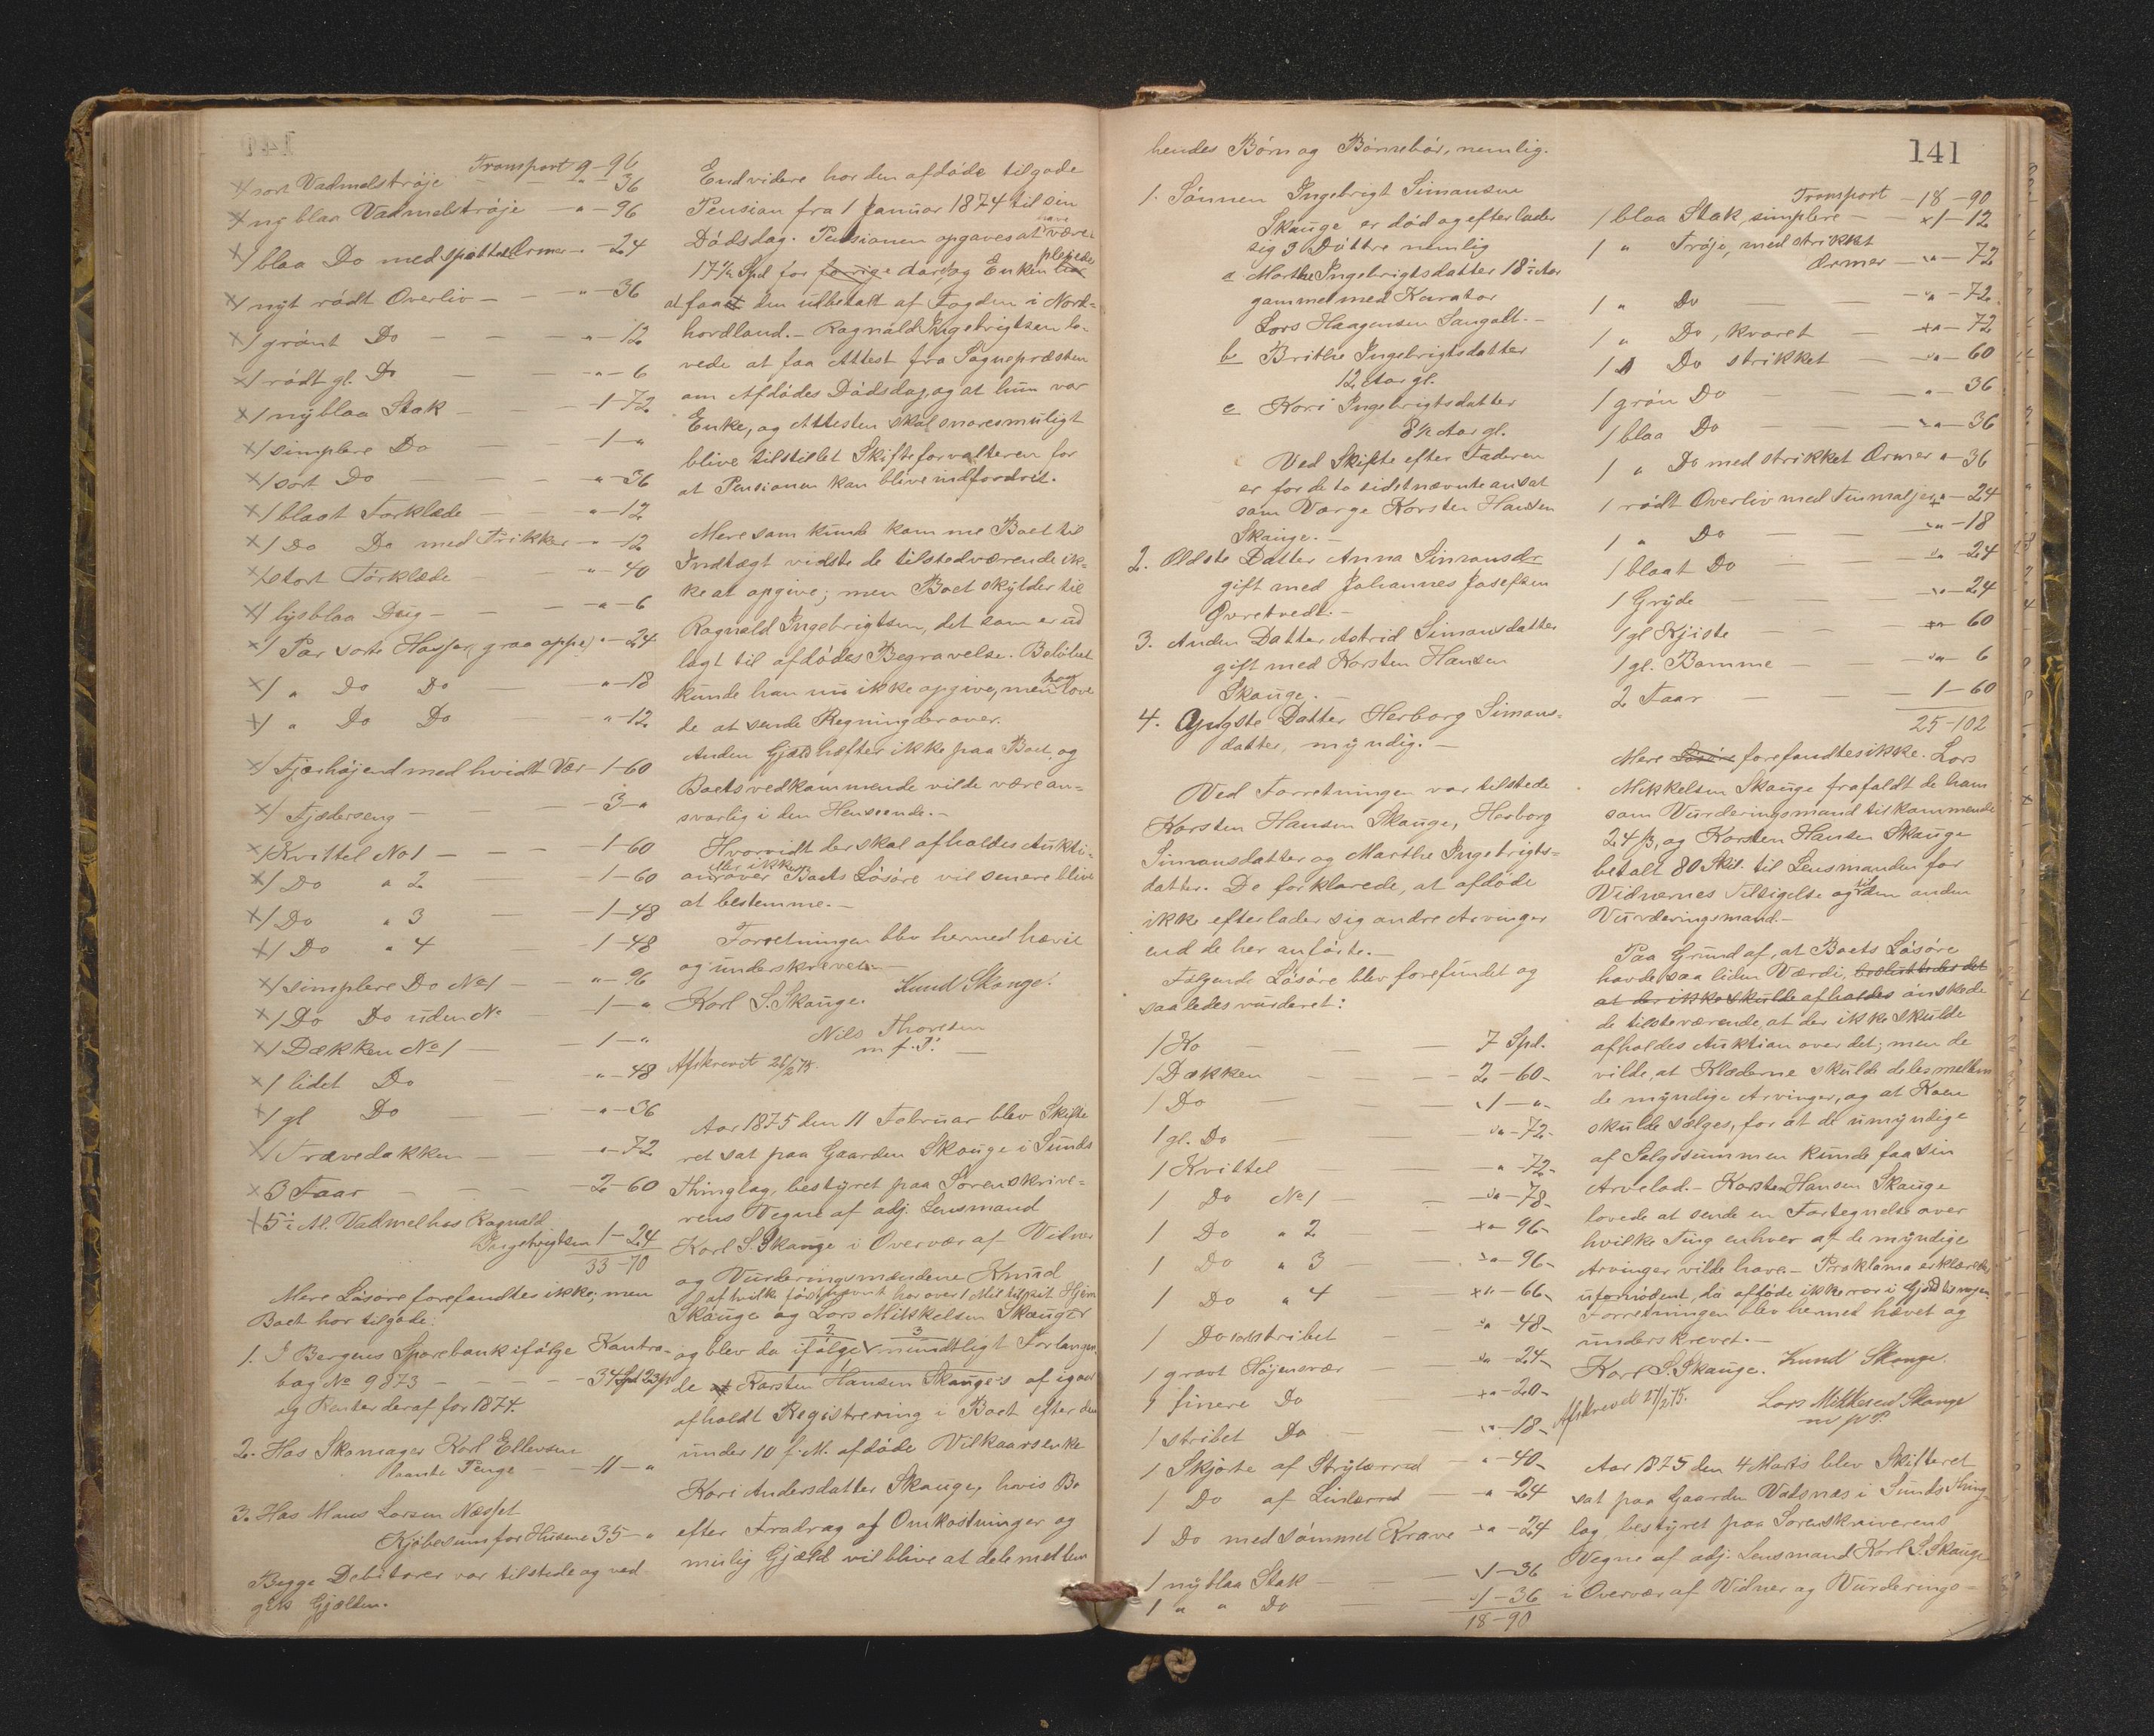 Transport 9-96
1 sort Vadmelstrøje - " - 36
1 ny blaa Vadmelstrøje - " - 96
1 blaa Do med spøttede Ærmer - " - 24
1 nyt rødt Overliv - " - 36
1 grønt Do - " - 12
1 rødt gl. Do - " - 6
1 ny blaa Stak - 1-72
1 simplere Do - 1 - "
1 sort Do - " - 36
1 blaat Forklæde - " - 12
1 Do Do med Prikker - " - 12
1 stort Tørklæde - " - 40
1 lysblaa Dug - " - 6
1 Par sorte Hoser, graa oppe, " - 24
1 " Do Do " - 18
1 " Do Do " - 12
1 Fjærhøjend med hvidt Vær - 1-60
1 Fjæderseng - 3 - "
1 Kvittel No 1 - 1-60
1 Do " 2 - 1-60
1 Do " 3 - 1-48
1 Do " 4 - 1-48
1 simplere Do No 1 - " - 96
1 Do Do uden No - 1 - "
1 Dækken No 1 - 1 - "
1 lidet Do - " - 48
1 gl Do - " - 36
1 Trævedækken - " - 72
3 Faar - 2-60
5 1/2 Al. Vadmel hos Ragnald
Ingebrigtsen 1-24
33-70
Mere Løsøre forefandtes ikke; men
Boet har tilgode:
1. I Bergens Sparebank ifølge Kontra-
bog No 9873 - 34 Spd 23 ß
og Renter deraf for 1874.
2. Hos Skomager Karl Ellevsen
laante Penge - 11 - "
3. Hos Mons Larsen Næsset
Kjøbesum for Husene 35 - "
Begge Debitorer var tilstede og ved-
gik Gjælden.
Endvidere har den afdøde tilgode
Pension fra 1 Januar 1874 til sin
Dødsdag. Pensionen opgaves at have være
17 1/2 Spd for forrige Aar, og Enken har plejede
at faa den udbetalt af Fogden i Nord-
hordland. - Ragnald Ingebrigtsen lo-
vede at faa Attest fra Sognepræsten
om Afdødes Dødsdag, og at hun var
Enke, og Attesten skal snarest muligt
blive tilstillet Skifteforvalteren for
at Pensionen kan blive indfordret.
Mere som kunde komme Boet til
Indtægt vidste de tilstedværende ik-
ke at opgive; men Boet skylder til
Ragnald Ingebrigtsen, det som er ud
lagt til afdødes Begravelse. Beløbet
kunde han nu ikke opgive, men han love
de at sende Regning derover.
Anden Gjæld hæfter ikke paa Boet, og
Boets vedkommende vilde være an-
svarlig i den Henseende. -
Hvorvidt der skal afholdes Aukti-
on eller ikke over Boets Løsøre vil senere blive
at bestemme. -
Forretningen blev hermed hævet
og underskrevet. -
Karl S. Skauge. Knud Skauge.
Nils Thorsen
m. f. P.
Afskrevet 26/2 75.
Aar 1875 den 11 Februar blev Skifte
ret sat paa Gaarden Skauge i Sunds
Thinglag, bestyret paa Sorenskrive-
rens Vegne af adj. Lensmand
Karl S. Skauge i Overvær af Vidner
og Vurderingsmændene Knud
af hvilke førstnævnt har over 1 Mil til sit Hjem
Skauge og Lars Mikkelsen Skauge
og blev da ifølge mundtligt Forlangen
de af Karsten Hansen Skauge's af igaar
afholdt Registrering i Boet efter den
under 10 f. M. afdøde Vilkaarsenke
Kari Andersdatter Skauge, hvis Bo
efter Fradrag af Omkostninger og
mulig Gjæld vil blive at dele mellem
141
hendes Børn og Børnebør, nemlig.
1. Sønnen Ingebrigt Simonsen
Skauge er død og efterlader
sig 3 Døttre nemlig
a Marthe Ingebrigtsdatter 18 1/2 Aar
gammel med Kurator
Lars Haagensen Sangolt. -
b Brithe Ingebrigtsdatter
12 Aar gl.
c Kari Ingebrigtsdatter
8 1/2 Aar gl.
Ved Skifte efter Faderen
er for de to sidstnævnte ansat
somVærge Korsten Hansen
Skauge. -
2. Ældste Datter Anna Simonsdr
gift med Johannes Josefsen
Øvretvedt. -
3. Anden Datter Astrid Simonsdatter
gift med Korsten Hansen
Skauge. -
4. Yngste Datter Herborg Simons-
datter, myndig. -
Ved Forretningen var tilstede
Korsten Hansen Skauge, Herborg
Simonsdatter og Marthe Ingebrigts-
datter. De forklarede, at afdøde
ikke efterlader sig andre Arvinger
end de her anførte. -
Følgende Løsøre blev forefundet og
saaledes vurderet:
1 Ko - 7 Spd.
1 Dækken - 2-60-
1 Do - 1 - " -
1 gl. Do - " - 72-
1 Kvittel - " - 72-
1 Do No 1 - " - 78-
1 Do " 2 - " - 96-
1 Do " 3 - " - 96-
1 Do " 4 - " - 66-
1 Do stribet - " - 48-
1 graat Højensvær - " - 24-
1 finere Do - " - 20-
1 stribet Do - " - 18-
1 Skjorte af Strylærred - " - 40-
1 Do af Linlærred - " - 24
1 Do med sømmet Krave - " - 24
1 ny blaa Stak - 1-36
1 " " Do - 1-36
18-90
Transport - 18-90
1 blaa Stak, simplere - 1-12
1 " Trøje, med strikket
Ærmer - " - 72
1 " Do - " - 72
1 " Do, kvoret - " - 72
1 " Do strikket - " - 60
1 grøn Do - " - 36
1 blaa Do - " - 36
1 " Do med strikket Ærmer " - 36
1 rødt Overliv med Tinmaljer " - 24
1 " Do - " - 18
1 blaat Do - " - 24
1 Gryde - " - 24
1 gl Kjiste - " - 60
1 gl. Bomme - " - 6
2 Faar - 1-60
25-102
Mere Løsøre forefandtes ikke. Lars
Mikkelsen Skauge frafaldt de ham
som Vurderingsmand tilkommende
24 ß, og Korsten Hansen Skauge
betalt 80 Skil. til Lensmanden for
Vidnernes Tilsigelse og til den anden
Vurderingsmand. -
Paa Grund af, at Boets Løsøre
havde saa liden Værdi, besluttedes det
at der ikke skulde afholdes ønskede
de tilsteværende, at der ikke skulde
afholdes Auktion over det; men de
vilde, at Klæderne skulde deles mellem
de myndige Arvinger, og at Koen
skulde sælges, for at de umyndige
af Salgssummen kunde faa sin
Arvelod. - Korsten Hansen Skauge
lovede at sende en Fortegnelse over
hvilke Ting enhver af de myndige
Arvinger vilde have. - Proklama erklæredes
ufornødent, da afdøde ikke var i Gjæld til nogen.
Forretningen blev hermed hævet og
underskrevet. -
Karl S. Skauge. Knud Skauge.
Afskrevet 27/2 75. Lars Mikkelsen Skauge
m f P.
Aar 1875 den 4 Marts blev Skifteret
sat paa Gaarden Vadsnæs i Sunds Thing-
lag, bestyret paa Sorenskriverens
Vegne af adj. Lensmand Karl S. Skauge
i Overvær af Vidner og Vurderings-